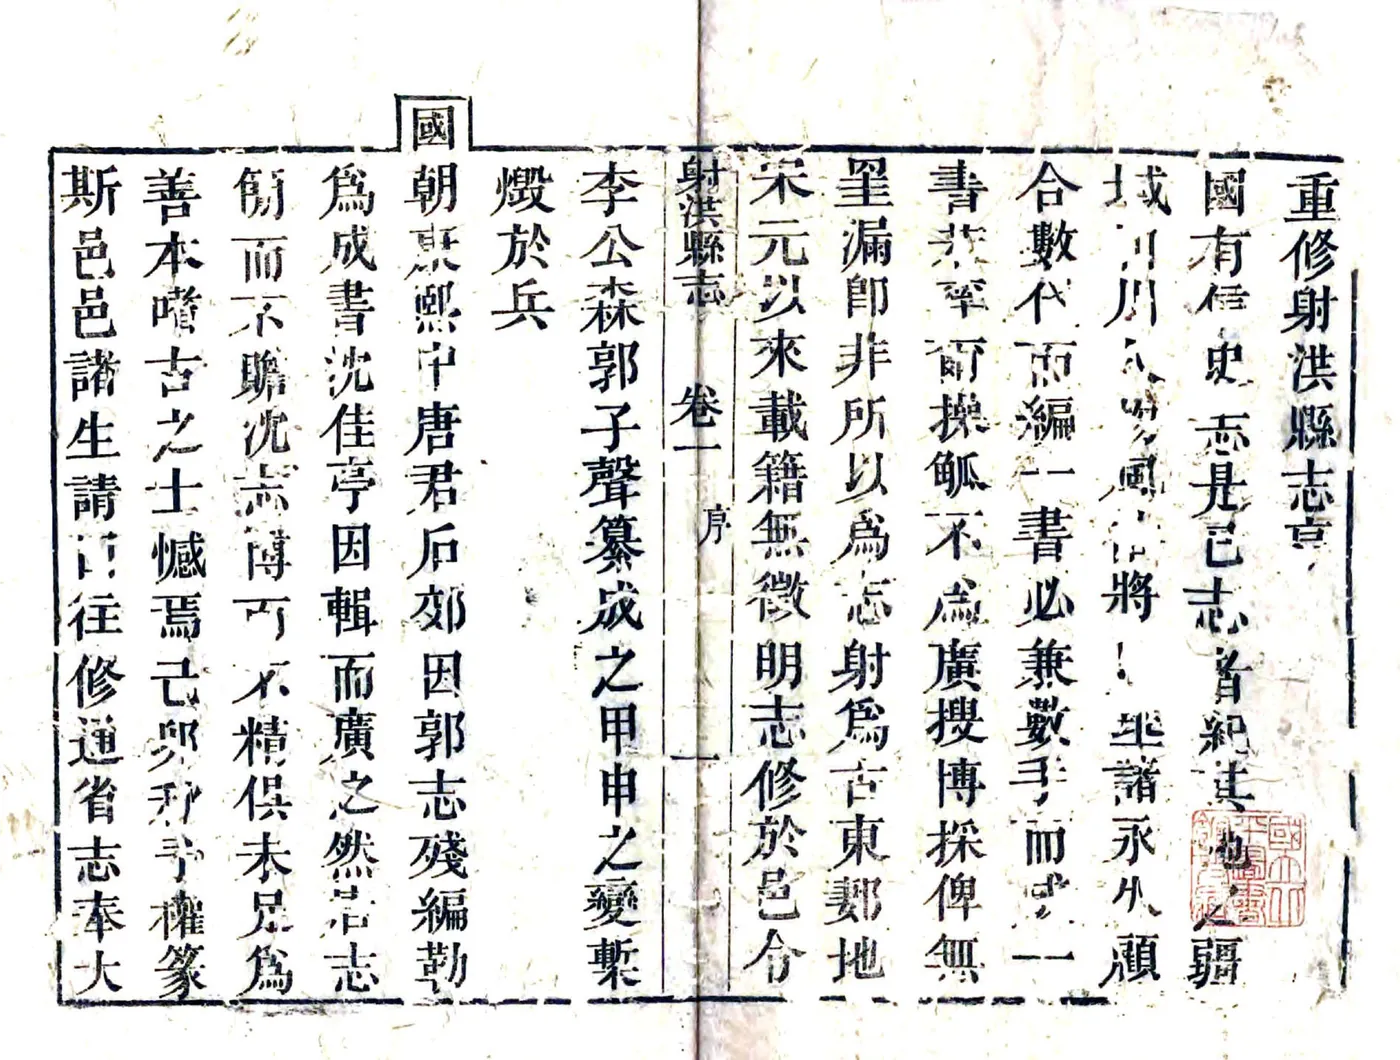 重修射洪縣志序
國有信史志是已志者紀其地之疆
域川風將諸永久顧
合數代而編一書必兼數手而成一
書茍率爾操觚不為廣搜博採俾無
罣漏卽非所以為志射為古東鄭地
宋元以來載籍無徵明志修於邑令
射洪縣志 卷一 序 一
李公森郭子聲纂成之甲申之變槧
燬於兵
國
朝康熙中唐君后郊因郭志殘編勒
為成書沈佳亭因輯而廣之然唐志
簡而不贍沈志博而不精俱未足為
善本嗜古之士憾焉己卯秋予權篆
斯邑邑諸生請曰往修通省志奉大